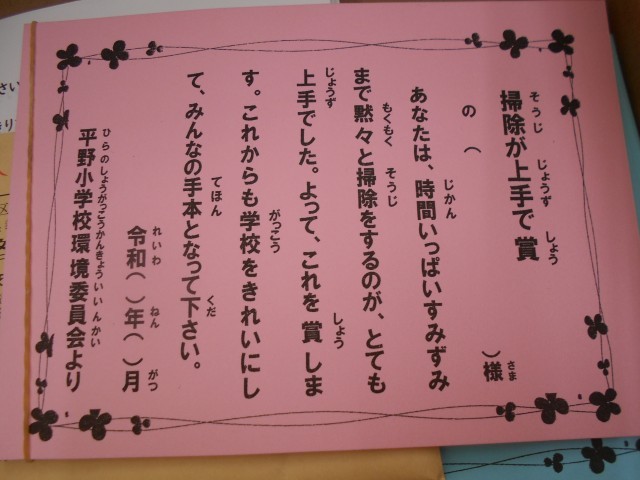 掃除が上手で賞
の（　　　　　　　　）様
あなたは、時間いっぱいすみずみ
まで黙々と掃除をするのが、とても
上手でした。よって、これを賞しま
す。これからも学校をきれいにし
て、みんなの手本となって下さい。
令和（　）年（　）月
平野小学校環境委員会より